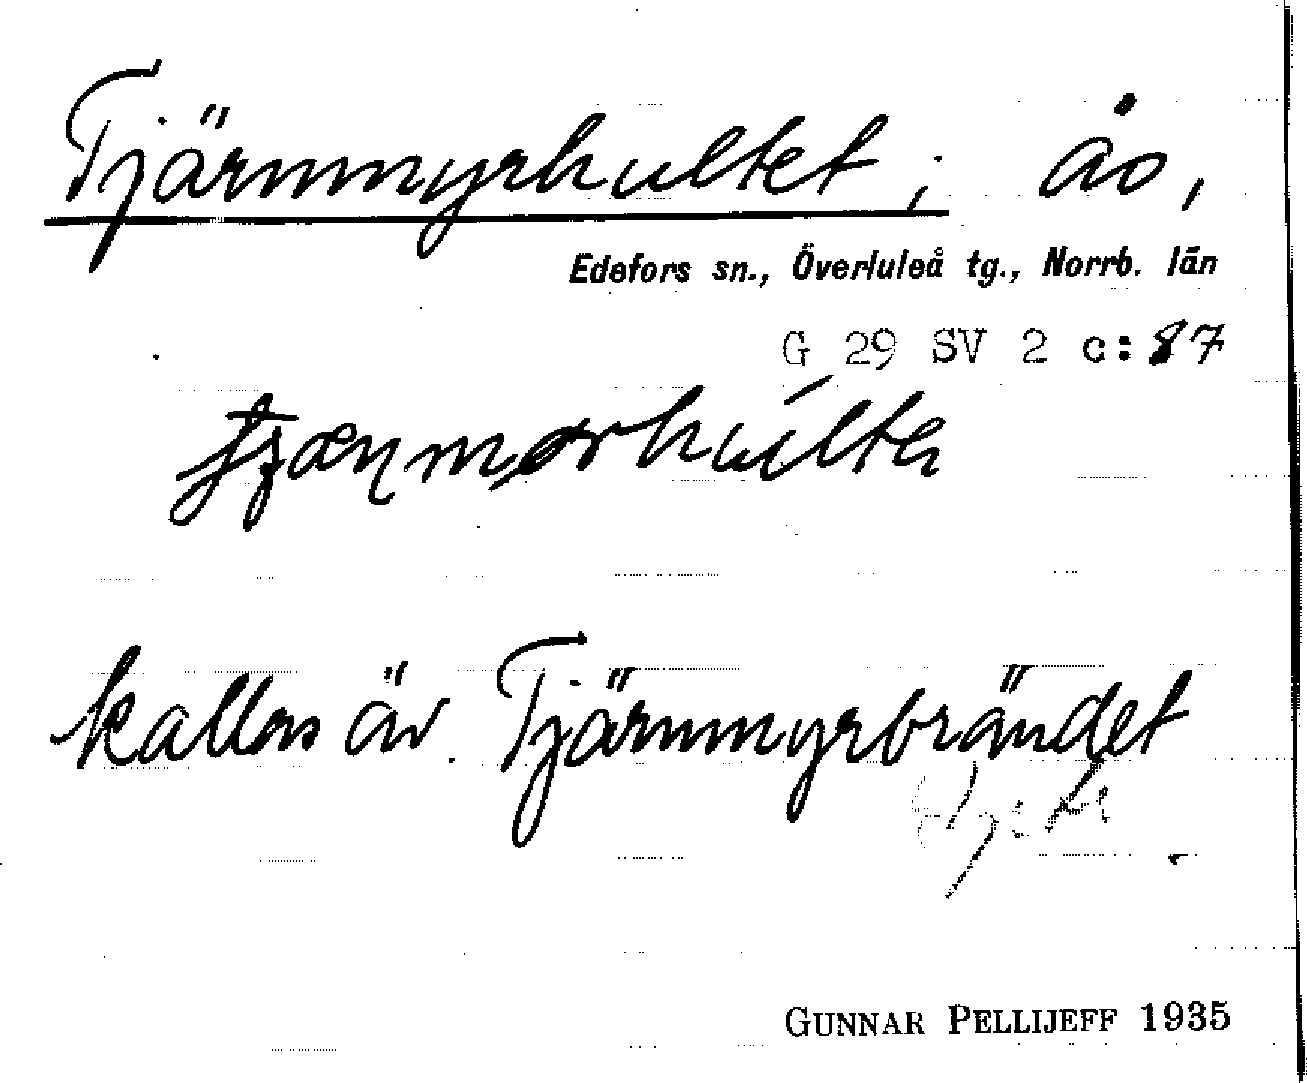 Tjärnmyrhultet; ås,
Edefors sn., Överluleå tg., Norrb. län
G 29 SV 2 c: 87
kallas äv. Tjärnmyrbrändet
GUNNAR PELLIJEFF 1935